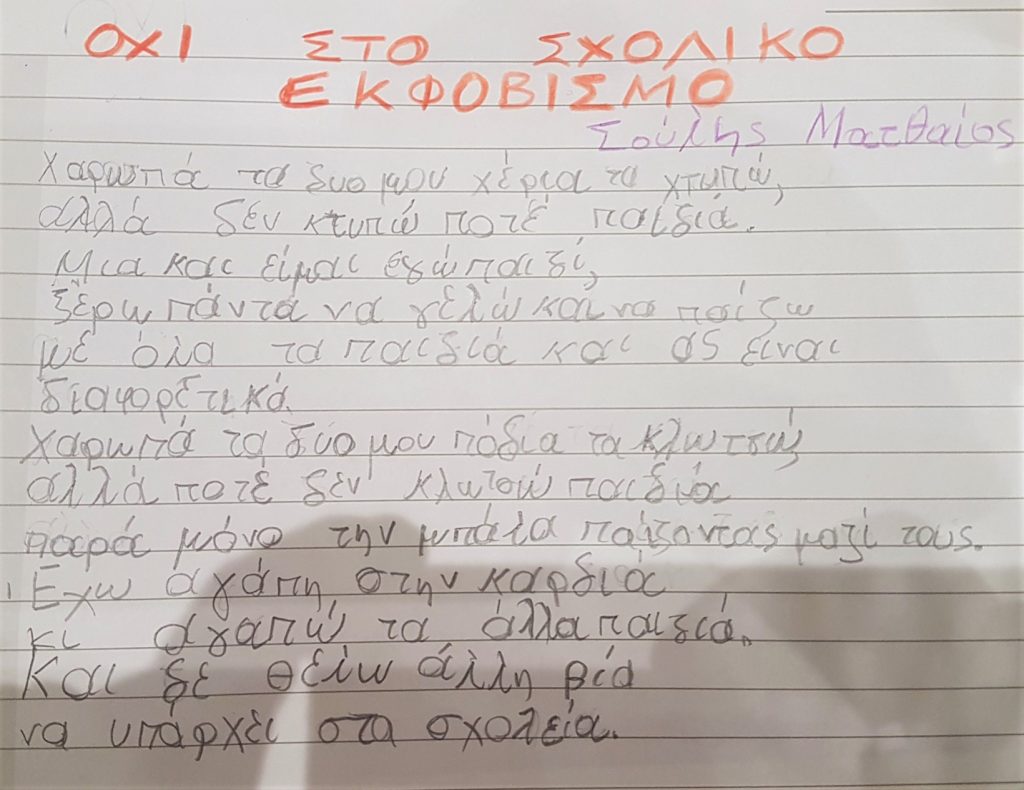 ΟΧΙ ΣΤΟ ΣΧΟΛΙΚΟ
ΕΚΦΟΒΙΣΜΟ
Σούλης Ματθαίος
Χαρωπά τα δυο μου χέρια τα χτυπώ,
αλλά δέν κτυπώ ποτέ παίδιά.
Μια και είμαι εγώ παιδί,
ξέρω πάντα να γελώ και να παίζω
μέ όλα τα παιδιά και ας είναι
διαφορέτικά.
Χαρωπά τα δύο μου πόδια τα κλωτσώ,
αλλά ποτέ δεν κλωτσώ παιδιά
παρά μόνο την μπάλα παίζοντας μαζί τους.
Έχω αγάπη στην καρδιά
κι αγαπώ τα άλλα παιδιά.
Και δε θέλω άλλη βία
να υπάρχει στα σχολεία.